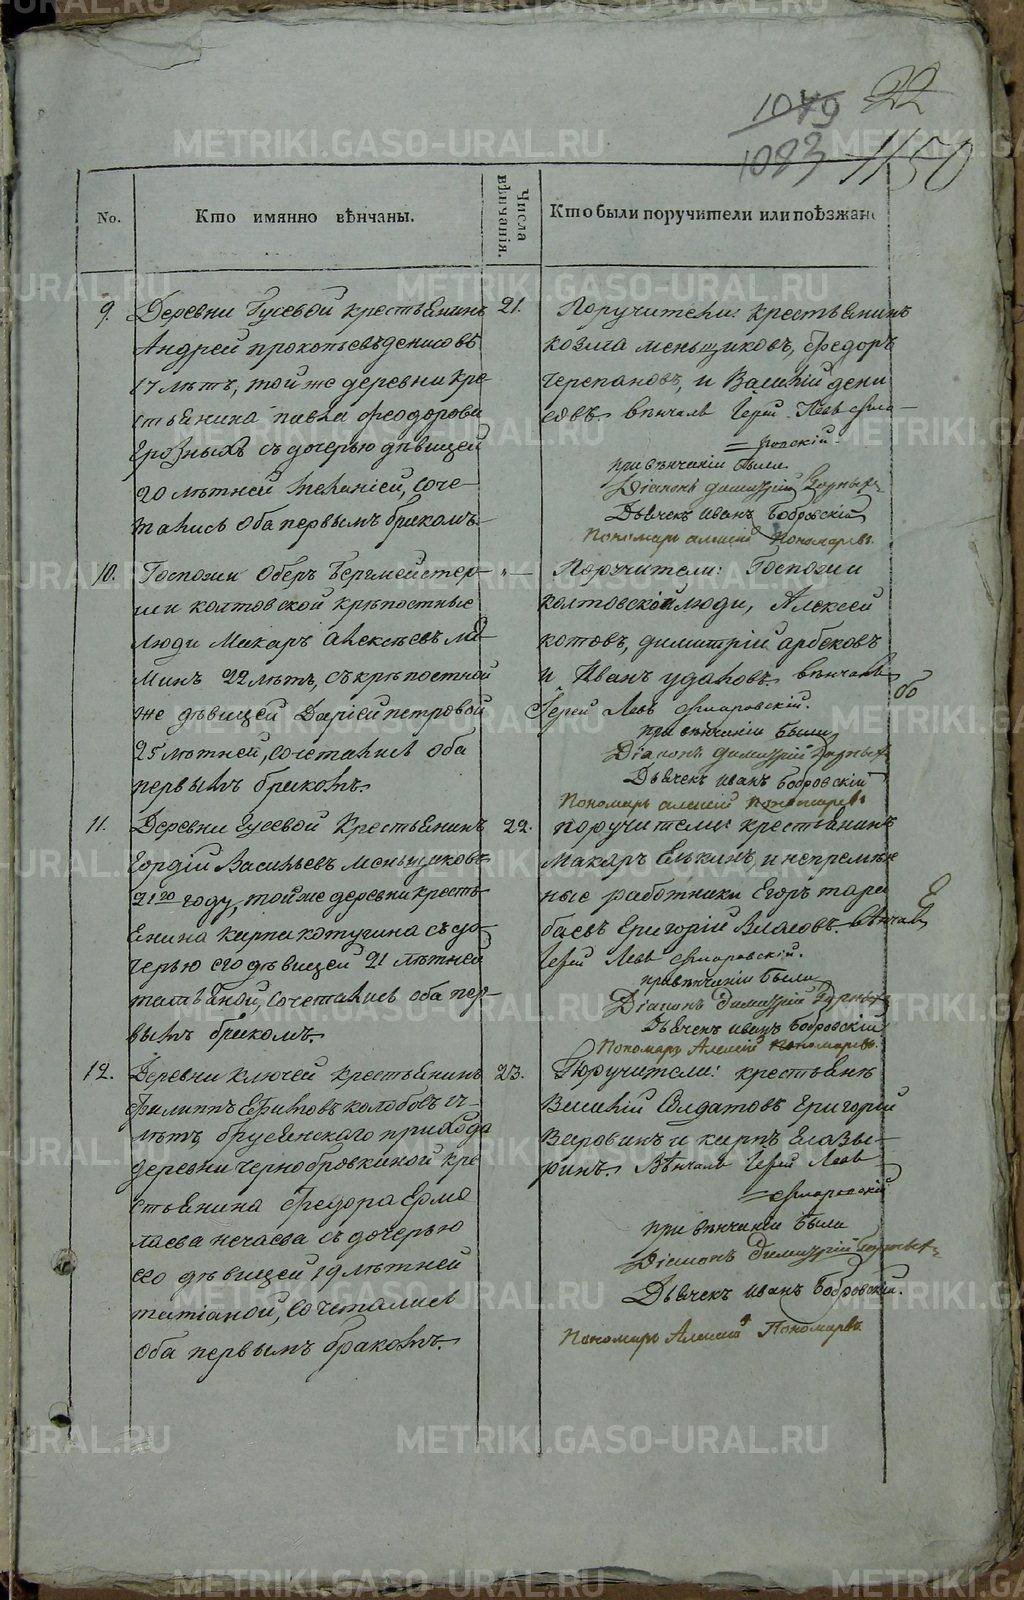 METRIKI.GASO-URAL.RU
1079 22
1083 1150
No.
Кто имянно вѣнчаны.
Числа вѣнчанія.
Кто были поручители или поѣзжан
9. Деревни Гусевой крестьянинъ
Андрей прокопьевъ денисовъ
17 лѣтъ, той же деревни кре-
стьянина павла феодорова
Грозныхъ съ дочерью дѣвицей
20 лѣтней меланіей, соче
тались оба первымъ бракомъ.
21. Поручители: крестьянинъ
козма меньщиковъ, федоръ
Черепановъ, и Василій дени
совъ. вѣнчалъ Іерей Левъ
при вѣнчаніи были
Діаконъ димитрій
Дьячекъ иванъ Бобровскій
Пономарь алексій Пономаревъ
10. Госпожи Оберъ Бергмейстер-
ши колтовской крѣпостные
люди Макаръ алексѣевъ
22 лѣтъ, съ крѣпостной
же дѣвицей Даріей петровой
25 лѣтней, сочетались оба
первымъ бракомъ.
"— Поручители: Госпожи
колтовской люди, Алексей
котовъ, димитрій арбековъ
и Иванъ удаловъ. вѣнчалъ
Іерей Левъ
при вѣнчаніи были
Діаконъ димитрій
Дьячекъ иванъ Бобровскій
Пономарь алексій Пономаревъ
11. Деревни Гусевой Крестьянинъ
Гордій Васильевъ Меньщиковъ
21го году, той же деревни кресть
янина карпа котугина съ до-
черью его дѣвицей 21 лѣтней
татьяной, сочетались оба пер-
вымъ бракомъ.
22. поручители: крестьянинъ
Макаръ Елькинъ, и непремѣн
ные работники Егоръ тара
баевъ Григорій Власовъ. вѣнчалъ
Іерей Левъ
при вѣнчаніи были
Діаконъ Димитрій
Дьячекъ иванъ Бобровскій
Пономарь Алексій Пономаревъ.
12. Деревни ключей крестьянинъ
Филиппъ колобовъ
лѣтъ, брусянскаго прихода
деревни чернобровкиной кре
стьянина Федора Ермо
лаева нечаева съ дочерью
его дѣвицей 19 лѣтней
татіаной, сочетались
оба первымъ бракомъ.
23. Поручители: крестьянъ
Василій Солдатовъ Григорій
и карпъ Глазы-
ринъ. Вѣнчалъ Іерей Левъ
при вѣнчаніи были
Діаконъ Димитрій
Дьячекъ иванъ Бобровскій.
Пономарь Алексій Пономаревъ